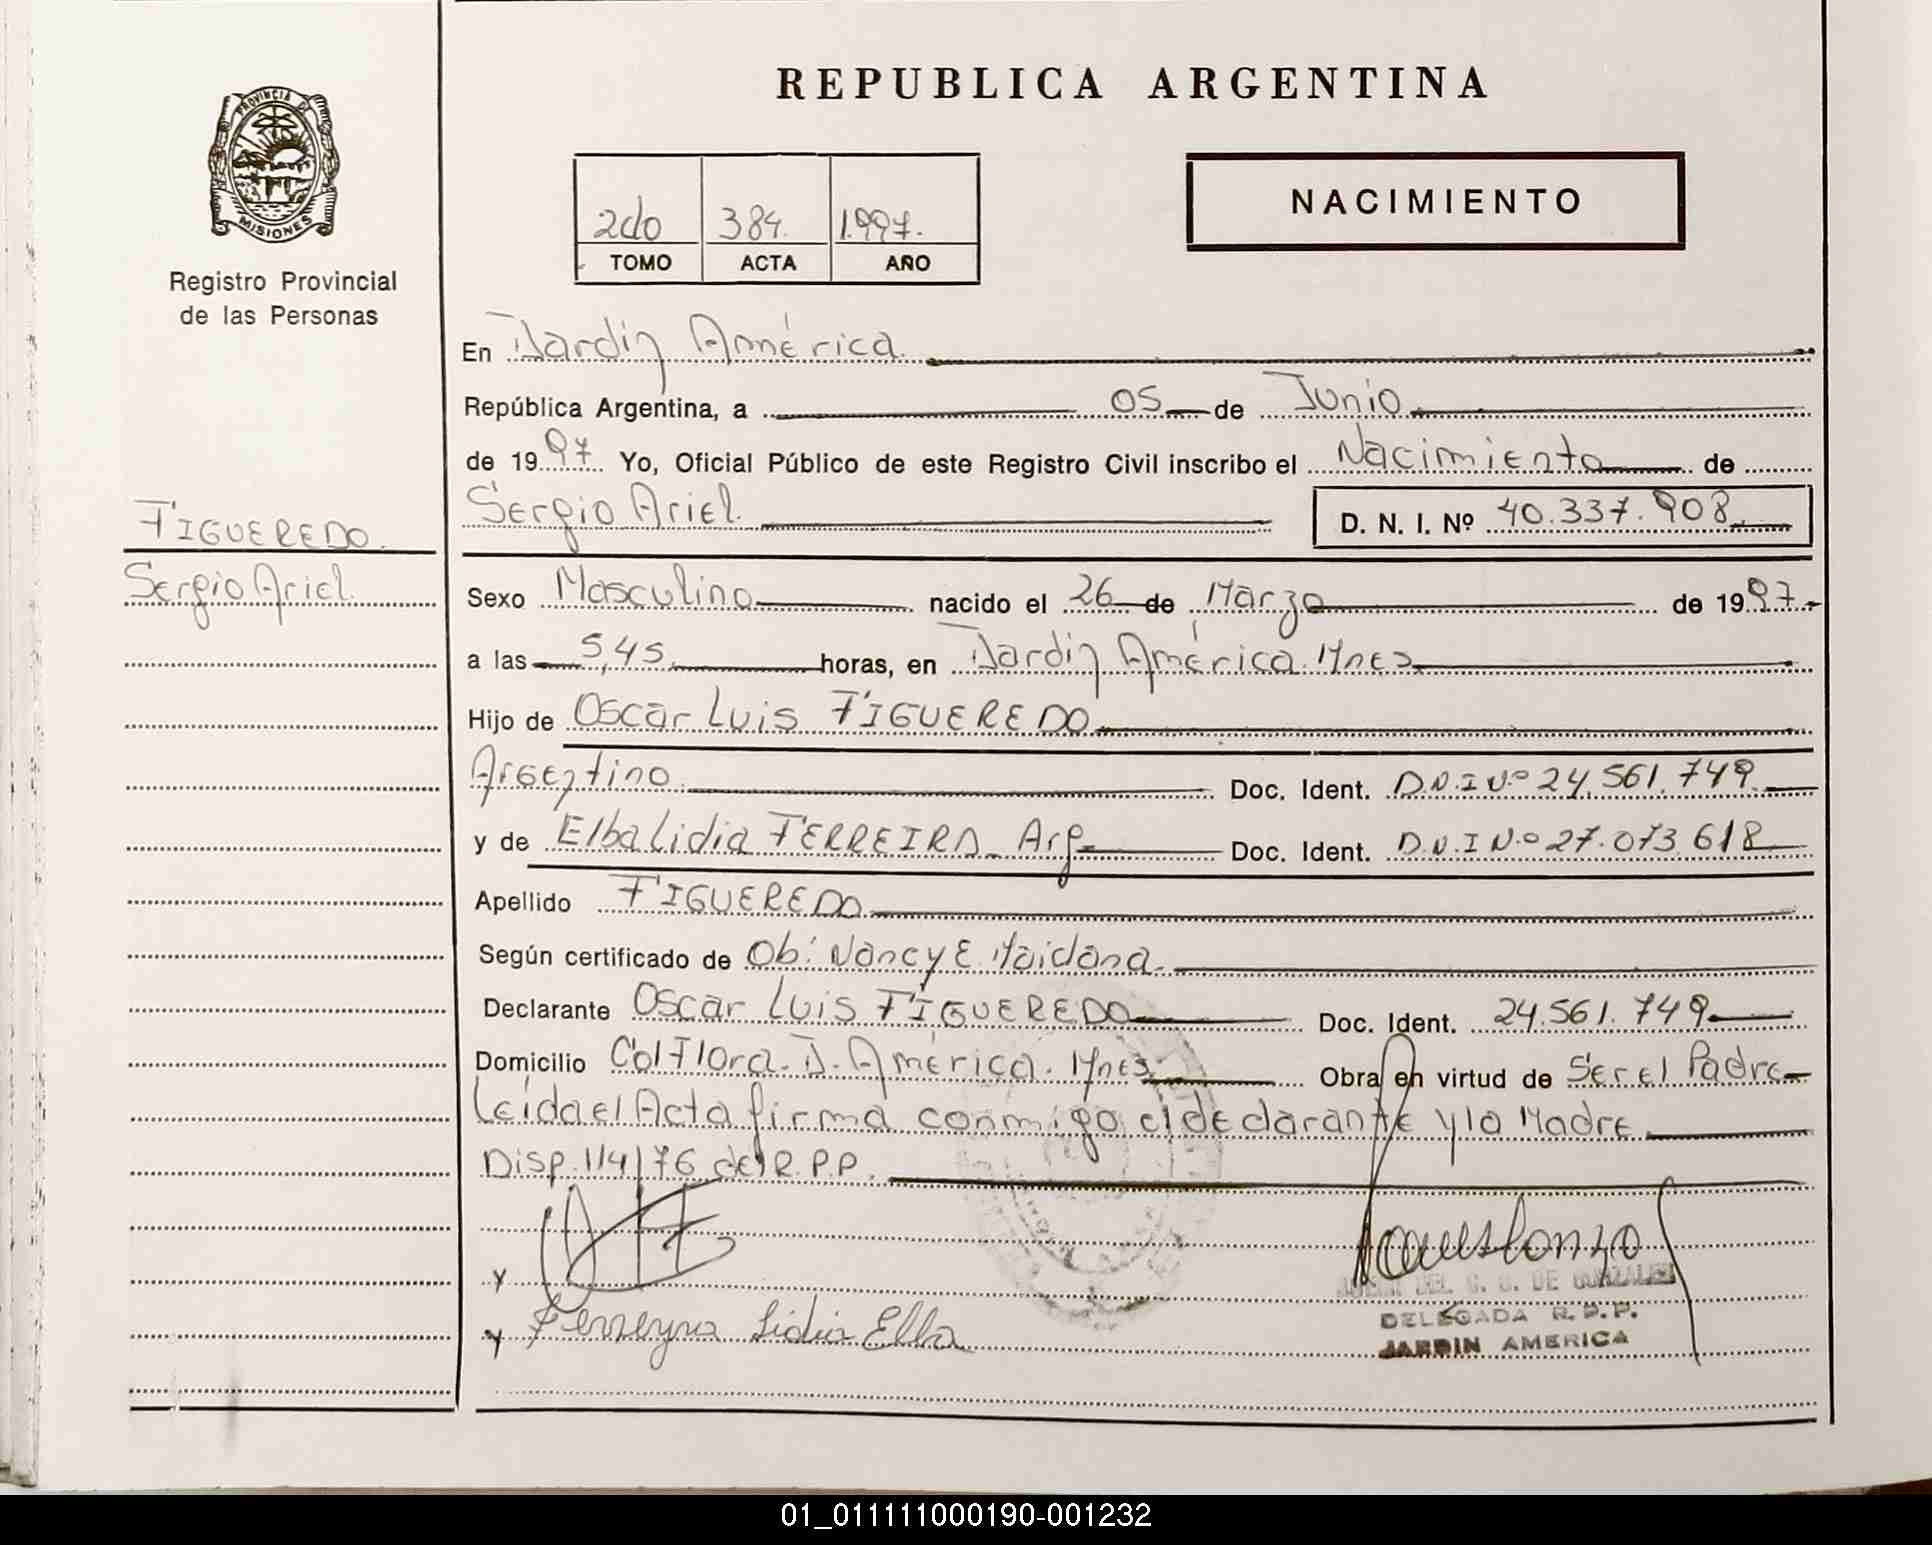 REPUBLICA ARGENTINA
PROVINCIA DE
MISIONES
Registro Provincial
de las Personas
2do 384. 1.997.
TOMO ACTA AÑO
NACIMIENTO
En Jardin América
República Argentina, a 05 de Junio
de 1997 Yo, Oficial Público de este Registro Civil inscribo el Nacimiento de
Sergio Ariel. D. N. I. Nº 40.337.908
FIGUEREDO.
Sergio Ariel.
Sexo Masculino nacido el 26 de Marzo de 1997
a las 5,45 horas, en Jardin América. Mnes
Hijo de Oscar Luis FIGUEREDO
Argentino Doc. Ident. D.N.I Nº 24.561.749
y de Elba Lidia FERREIRA Arg. Doc. Ident. D.N.I Nº 27.073.618
Apellido FIGUEREDO
Según certificado de Ob: Nancy E. Maidana.
Declarante Oscar Luis FIGUEREDO Doc. Ident. 24.561.749
Domicilio Col Flora. J. América. Mnes Obra en virtud de Ser el Padre
Leida el Acta firma conmigo el declarante y la Madre
Disp. 1/4/76 del R.P.P.
y
y Ferreyra Lidia Elba
DEL C. G. DE GONZALEZ
DELEGADA R.P.P.
JARDIN AMERICA
01_011111000190-001232